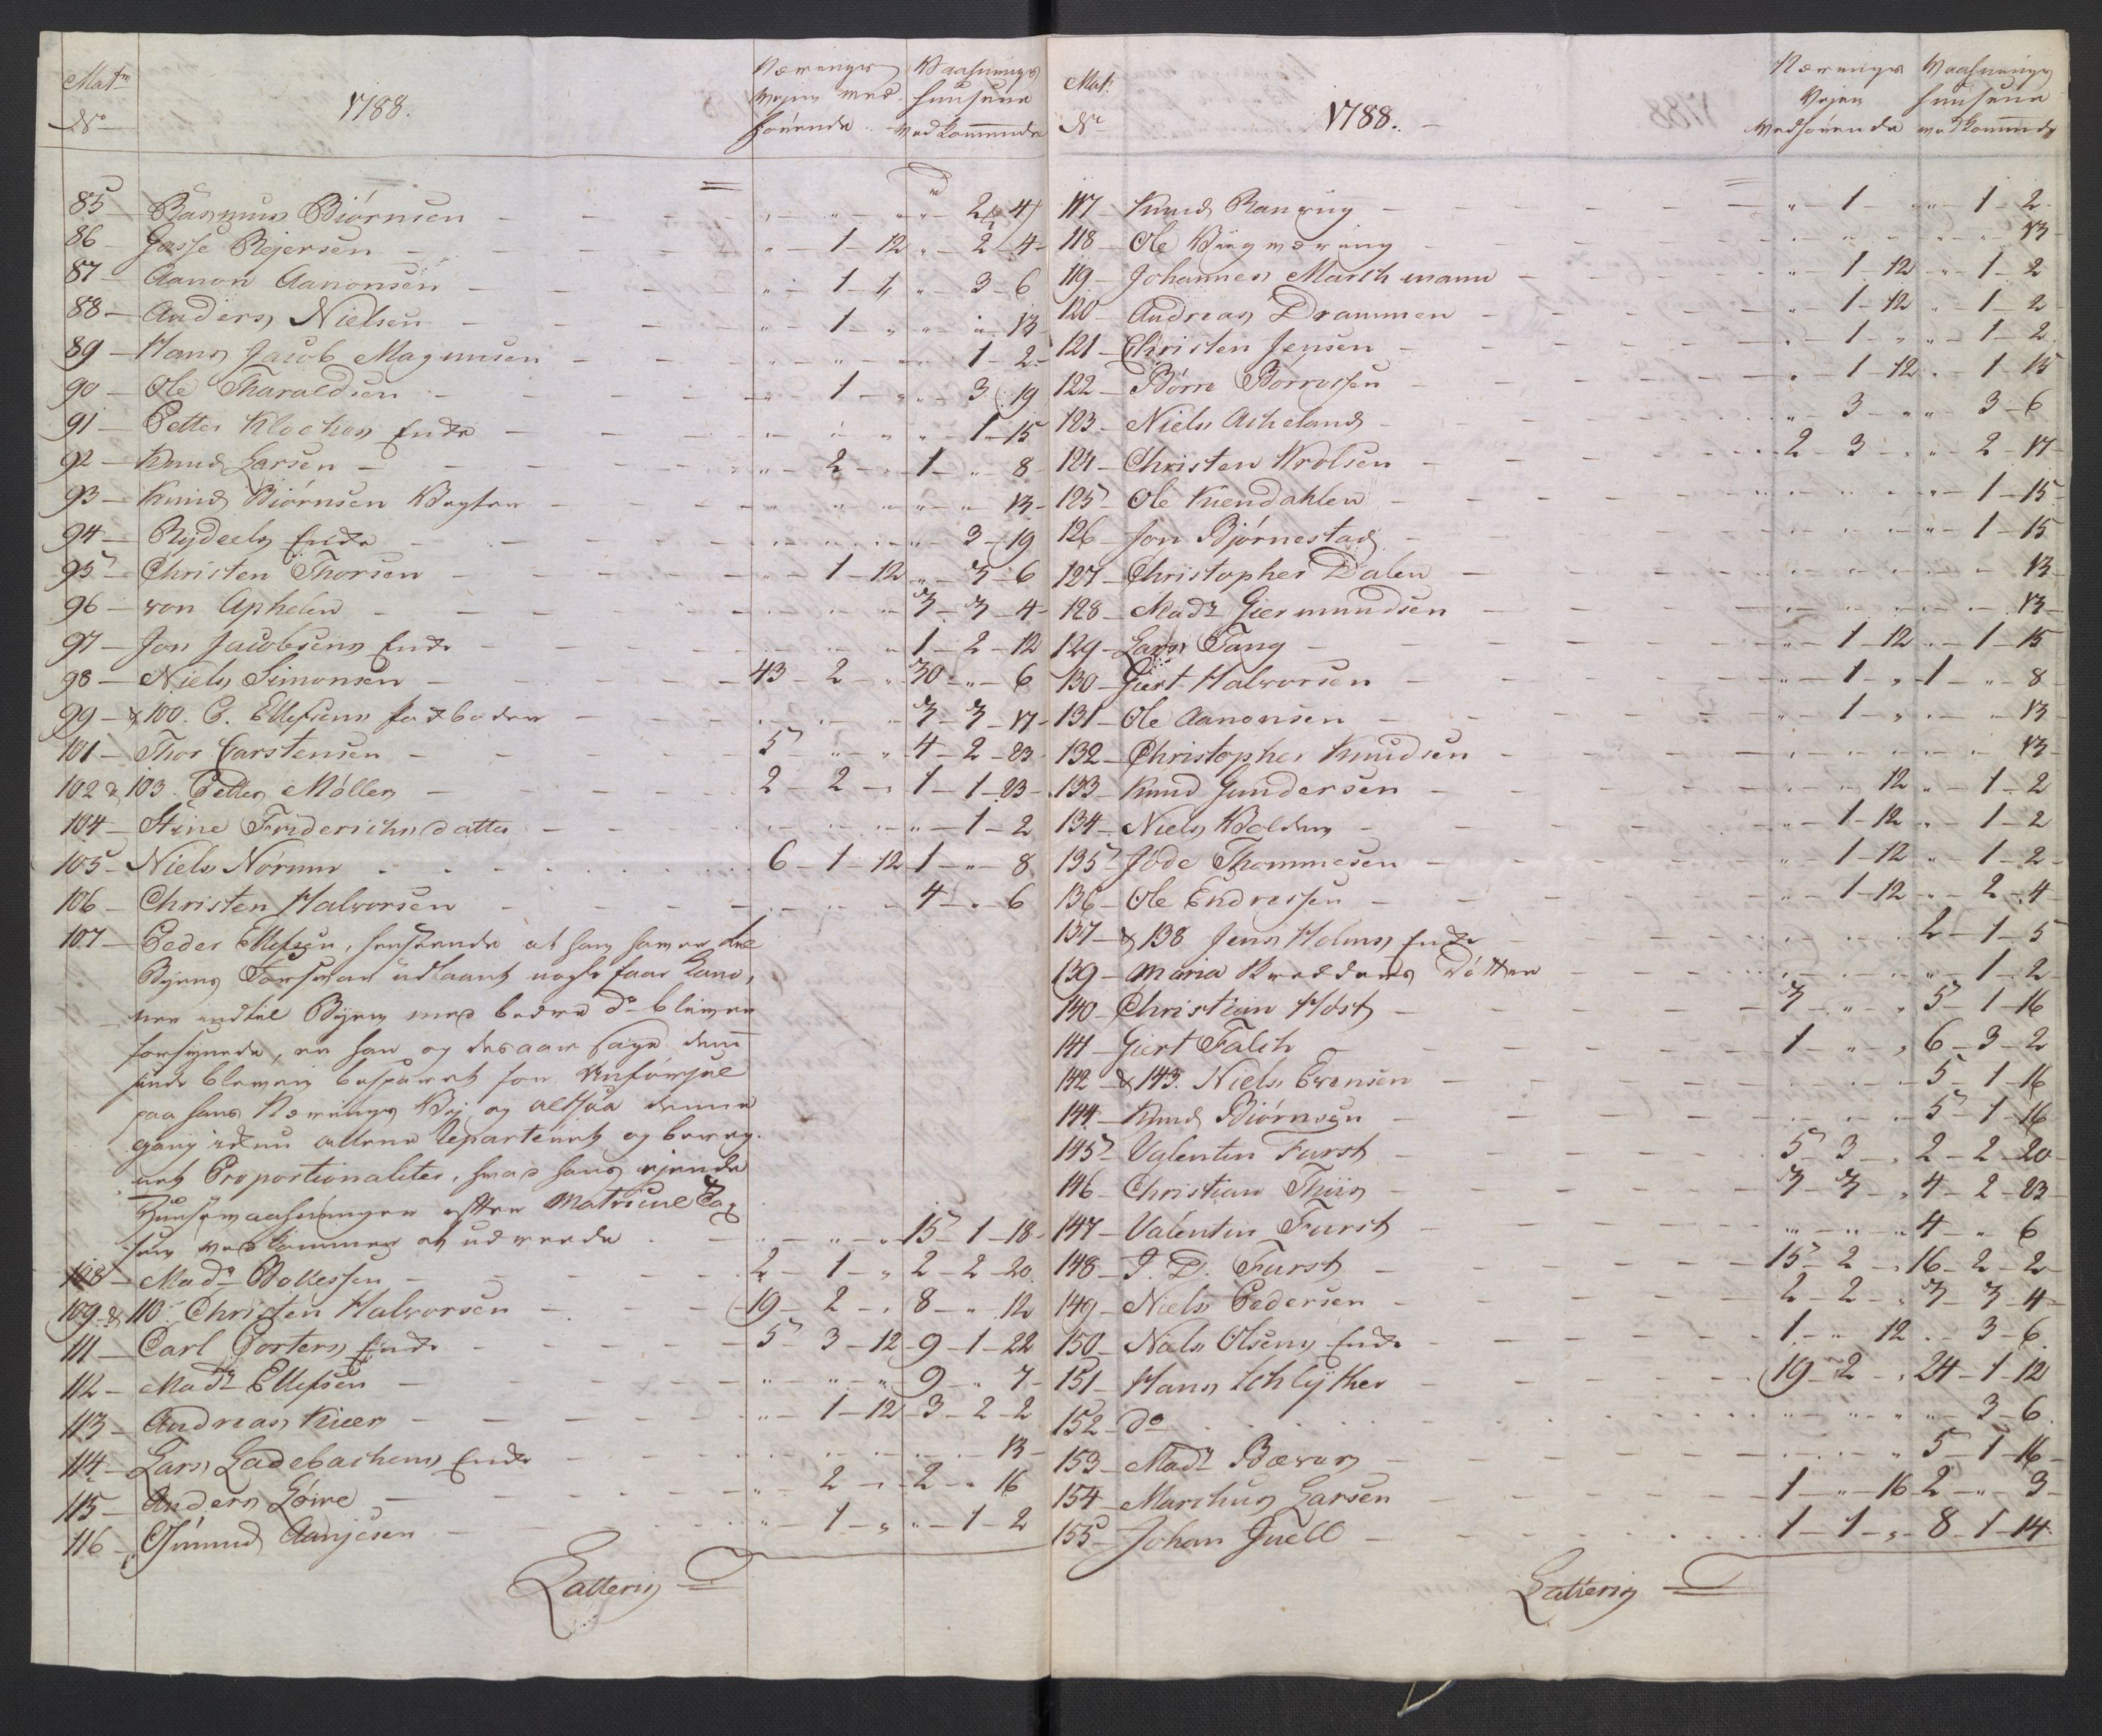 Matr No
1788.
Nærings Vejen ved førende
Vaahnings Huusene vedkommende
85 – Rasmus Biørnsen – „ – „ – „ „ – 2 – 4
86 – Gasse Rejersen – „ – 1 – 12 „ – 2 – 4
87 – Aanon Aanonsen – „ – 1 – „ „ – 3 – 6
88 – Anders Nielsen – „ – 1 – „ „ – „ – 13
89 – Hans Jacob Magnusen – „ – „ – „ „ – 1 – 2
90 – Ole Tharaldsen – „ – 1 – „ „ – 3 – 19
91 – Petter Klochers Enke – „ – „ – „ „ – 1 – 15
92 – Knud Larsen – „ – 2 – „ 1 – „ – 8
93 – Knud Biørnsen Vegter – „ – „ – „ „ – „ – 13
94 – Rydeels Enke – „ – „ – „ „ – 3 – 19
95 – Christen Thorsen – „ – 1 – 12 „ – 3 – 6
96 – von Aphelen – „ – „ – „ 3 – 3 – 4
97 – Jon Jacobsens Enke – „ – „ – „ 1 – 2 – 12
98 – Niels Simonsen – 43 – 2 – „ 30 – „ – 6
99 – & 100. P. Ellefsens Pakboder – „ – „ – „ 3 – 3 – 17
101 – Thor Carstensen – 5 – „ – „ 4 – 2 – 23
102 & 103. Petter Møller – 2 – 2 – „ 1 – 1 – 23
104 – Stine Friderichsdatter – „ – „ – „ „ – 1 – 2
105 – Niels Norum – 6 – 1 – 12 1 – „ – 8
106 – Christen Halvorsen – „ – „ – „ 4 – „ – 6
107 – Peder Ellefsen, henseende at han haver til
Byens Forsvar udlaant nogle faae Kano,
ner indtil Byen med bedre do bliver
forsynede, er han og desaar sagde
blevnen besparet for Anførsel
paa hans Nærings Vej og altsaa denne
gang ikkun allene reparteret og bereg,
net Proportionaliter, hvad hans ejende
Huusevaahninger efter Matricul Tax
vedkommer at udreede – „ – „ – „ 15 – 1 – 18
108 – Made Bollessen – 2 – 1 – „ 2 – 2 – 20
109 & 110. Christen Halvorsen – 19 – 2 – „ 8 – „ – 12
111 – Carl Porters Enke – 5 – 3 – 12 – 9 – 1 – 22
112 – Made Ellefsen – „ – „ – „ 9 – „ – 7
113 – Andreas Kiær – „ – 1 – 12 – 3 – 2 – 2
114 – Lars Ladebachens Enke – „ – „ – „ „ – „ – 13
115 – Anders Løwe – „ – 2 – „ 2 – „ – 16
116 – Osmund Aanjesen – „ – 1 – „ „ – 1 – 2
Latteris
Mat: No
1788.
Nærings Vejen vedførende
Vaahnings Huusene vedkommende
117 – Knud Ranvug – „ – 1 – „ „ – 1 – 2
118 – Ole – „ – „ – „ „ – „ – 13
119 – Johannes Marchmann – „ – 1 – 12 „ – 1 – 2
120 – Andreas Drammen – „ – 1 – 12 „ – 1 – 2
121 – Christen Jensen – „ – 1 – „ „ – 1 – 2
122 – Børre Borresen – „ – 1 – 12 „ – 1 – 15
123 – Niels Acheland – „ – 3 – „ „ 3 – 6
124 – Christen Wrolsen – 2 – 3 – „ „ – 2 – 17
125 – Ole Kuendahlen – „ – „ – „ „ – 1 – 15
126 – Jon Bjørnestad – „ – „ – „ „ – 1 – 15
127 – Christopher Dalen – „ – „ – „ „ – „ – 13
128 – Made Giermundsen – „ – „ – „ „ – „ – 13
129 – Lars Tang – „ – 1 – 12 „ – 1 – 15
130 – Giert Halvorsen – „ – 1 – „ 1 – „ – 8
131 – Ole Aanonsen – „ – 1 – „ „ – „ – 13
132 – Christopher Knudsen – „ – „ – „ „ – „ – 13
133 – Knud Gundersen – „ – „ – 12 „ – 1 – 2
134 – Niels Bolder – „ – 1 – 12 „ – 1 – 2
135 – Jøde Thommesen – „ – 1 – 12 „ – 1 – 2
136 – Ole Endresen – „ – 1 – 12 „ – 2 – 4
137 – & 138 Jens Holms Enke – „ – „ – „ 2 – 1 – 5
139 – Maria Døtter – „ – „ – „ „ – 1 – 2
140 – Christian Høst – 3 – „ – „ 5 – 1 – 16
141 – Giert Falch – 1 – „ – „ 6 – 3 – 2
142 – & 143. Niels Evensen – „ – „ – „ 5 – 1 – 16
144 – Knud Biørnsen – „ – „ – „ 5 – 1 – 16
145 – Valentin Furst – 5 – 3 – „ 2 – 2 – 20
146 – Christian Thiis – 3 – 3 – „ 4 – 2 – 23
147 – Valentin Furst – „ – „ – „ 4 – „ – 6
148 – J. D. Furst – 15 – 2 – „ 16 – 2 – 2
149 – Niels Pedersen – 2 – 2 – „ 3 – 3 – 4
150 – Niels Olsens Enke – 1 – „ – 12 „ – 3 – 6
151 – Hans Schlÿtter – 19 – 2 – „ 24 – 1 – 12
152 – do – „ – „ – „ „ – 3 – 6
153 – Made Bævers – „ – „ – „ 5 – 1 – 16
154 – Marchus Larsen – 1 – „ – 16 2 – „ – 3
155 – Johan Juell – 1 – 1 – „ – 8 – 1 – 14
Latteris